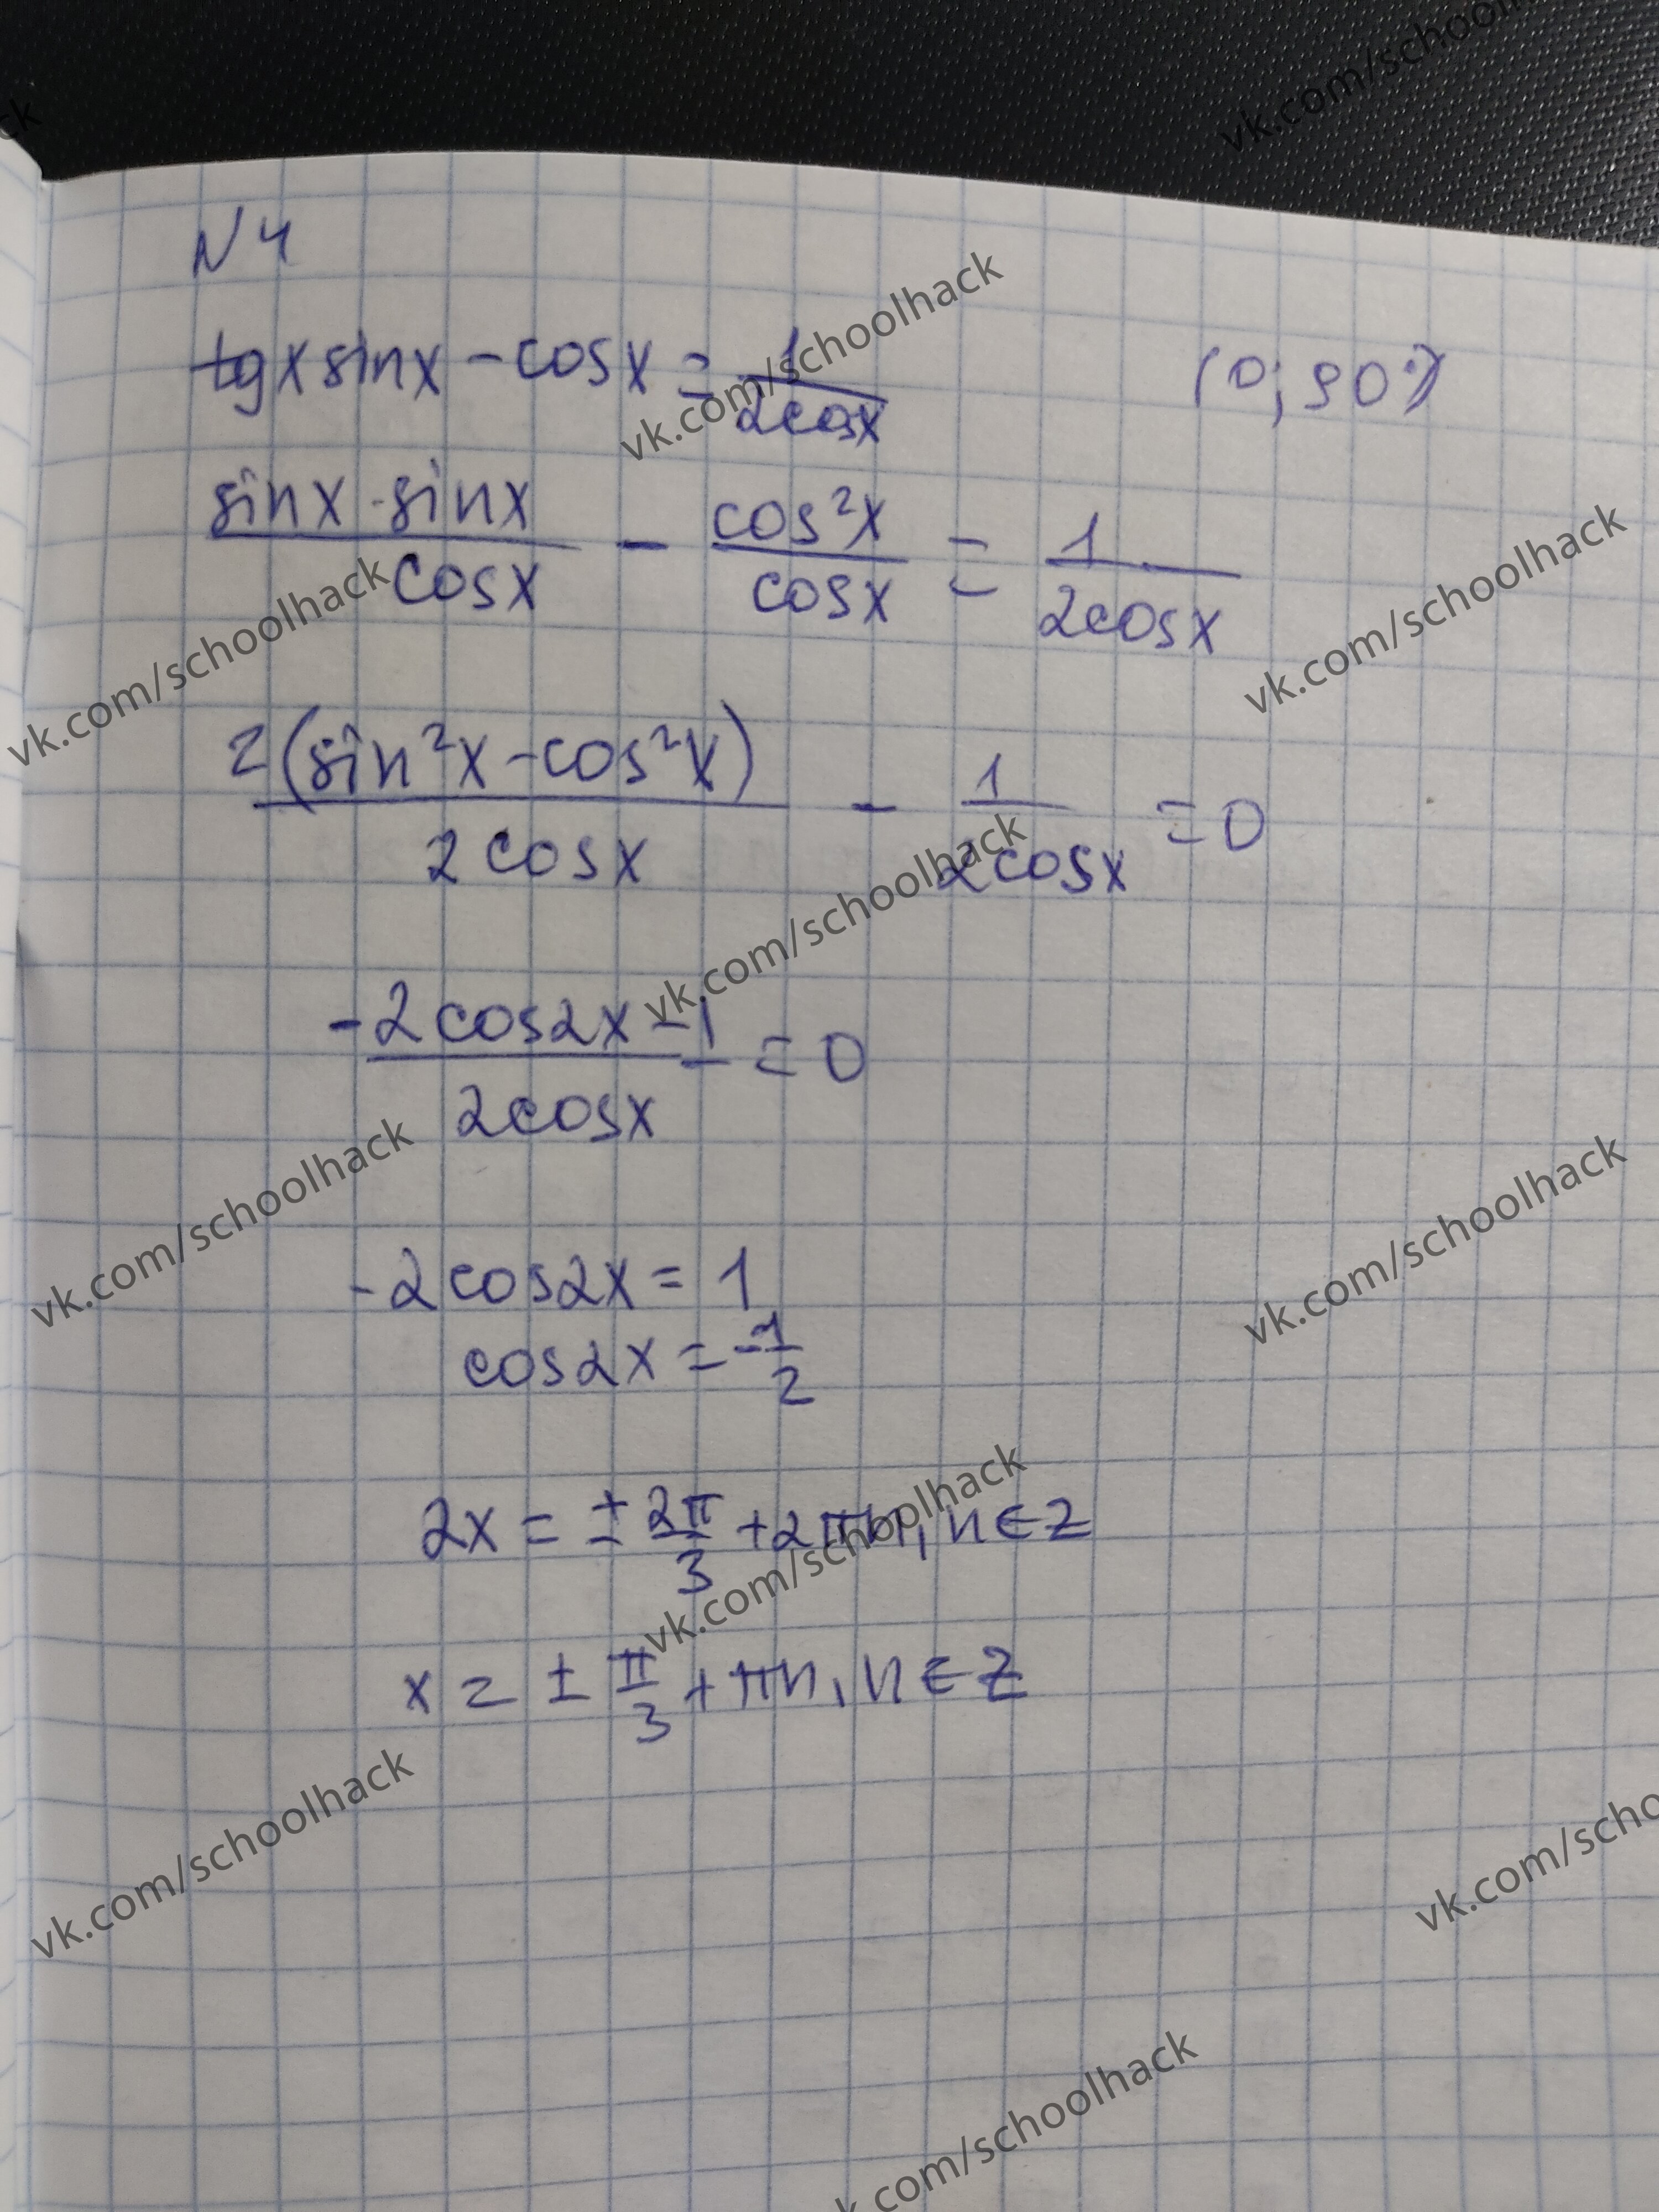 N4
tgx sinx - cosx = 1/2cosx (0; 90°)
sinx · sinx/cosx - cos²x/cosx = 1/2cosx
2(sin²x - cos²x)/2cosx - 1/2cosx = 0
-2cos2x - 1/2cosx = 0
-2cos2x = 1
cos2x = -1/2
2x = ± 2π/3 + 2πn, n ∈ Z
x = ± π/3 + πn, n ∈ Z
vk.com/schoolhack
vk.com/schoolhack
vk.com/schoolhack
vk.com/schoolhack
vk.com/schoolhack
vk.com/schoolhack
vk.com/schoolhack
vk.com/schoolhack
vk.com/schoolhack
vk.com/scho
k.com/schoolhack